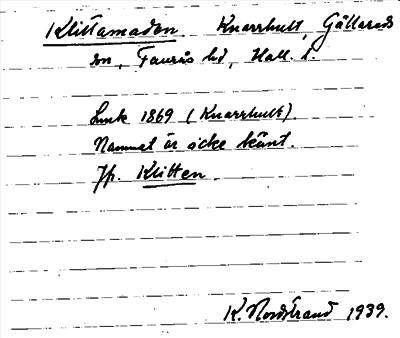 Klittamaden. Knarrhult, Gällareds
sn, Faurås hd, Hall. l.
Lmk 1869 (Knarrhult).
Namnet är icke känt.
Jfr. Klitten.
K. Nordstrand 1939.